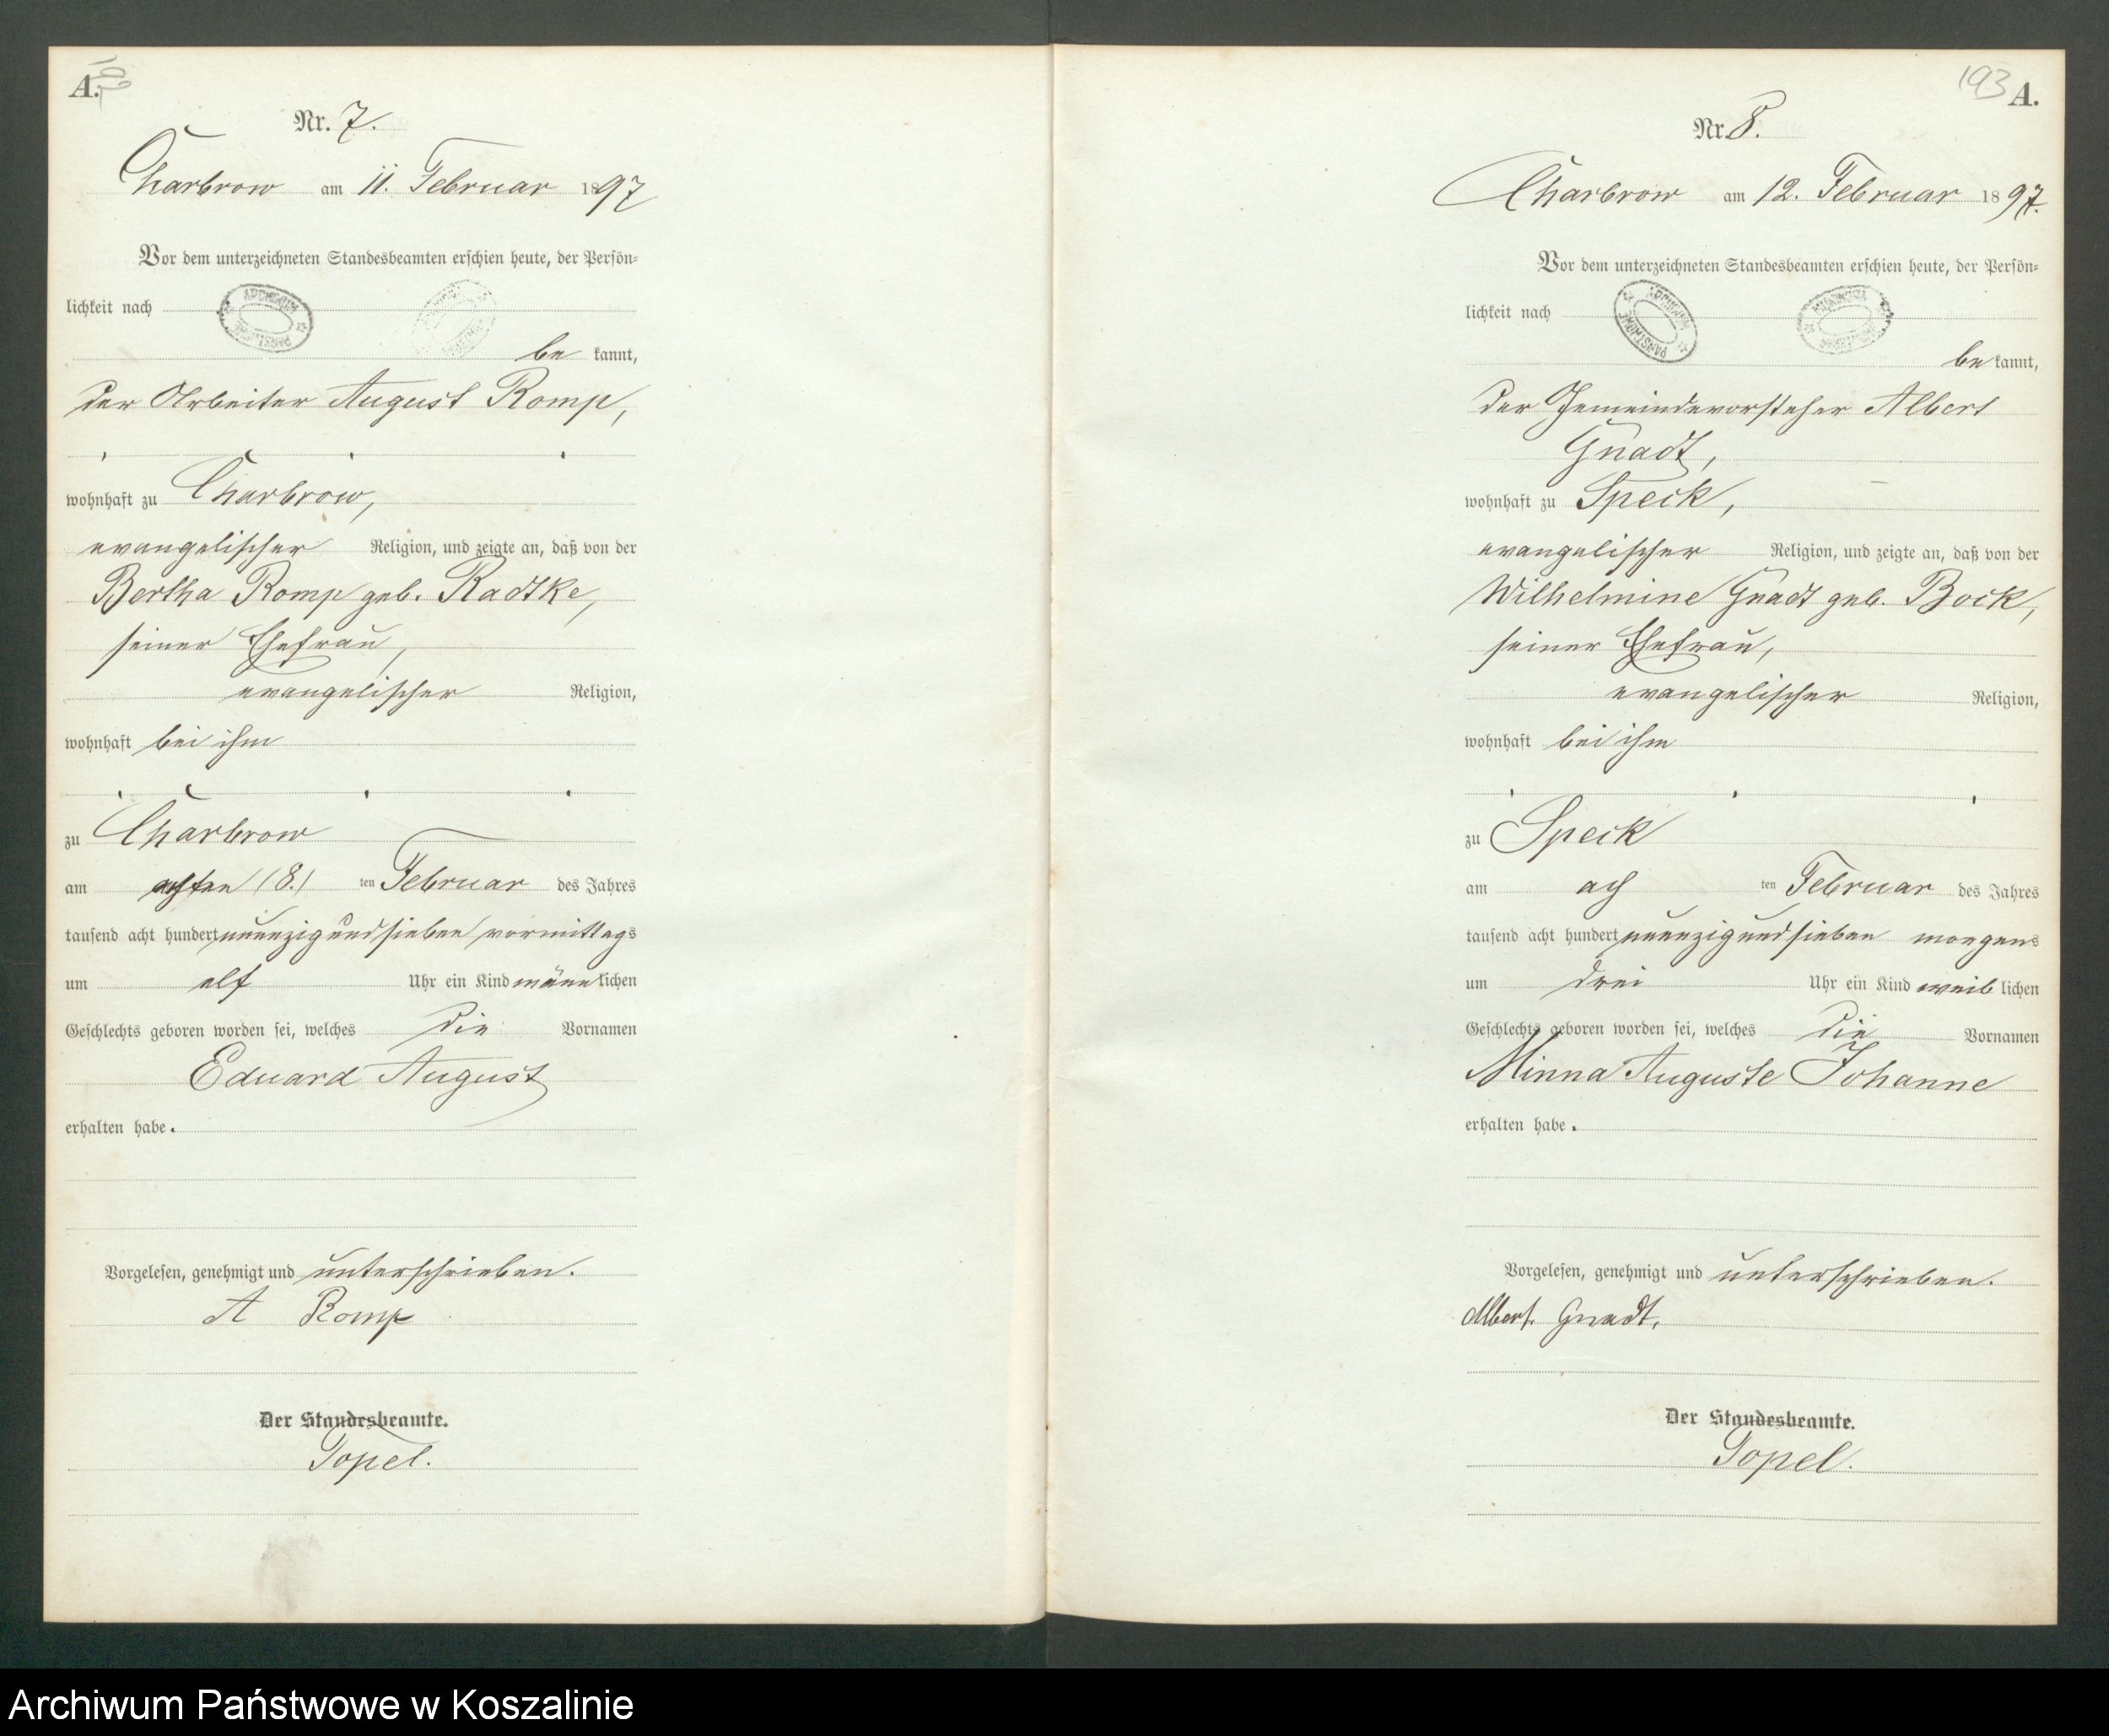 A.
Nr. 7.
Charbrow am 11. Februar 1897
Vor dem unterzeichneten Standesbeamten erschien heute, der Persön-
lichkeit nach
be kannt,
der Arbeiter August Romp,
wohnhaft zu Charbrow,
evangelischer Religion, und zeigte an, daß von der
Bertha Romp geb. Radtke,
seiner Ehefrau,
evangelischer Religion,
wohnhaft bei ihm
zu Charbrow
am achten (8.) ten Februar des Jahres
tausend acht hundert neunzig und sieben vormittags
um elf Uhr ein Kind männlichen
Geschlechts geboren worden sei, welches die Vornamen
Eduard August
erhalten habe.
Vorgelesen, genehmigt und unterschrieben.
A Romp
Der Standesbeamte.
Topel.
193 A.
Nr. 8.
Charbrow am 12. Februar 1897.
Vor dem unterzeichneten Standesbeamten erschien heute, der Persön-
lichkeit nach
be kannt,
der Gemeindevorsteher Albert
Gnadt,
wohnhaft zu Speck,
evangelischer Religion, und zeigte an, daß von der
Wilhelmine Gnadt geb. Bock,
seiner Ehefrau,
evangelischer Religion,
wohnhaft bei ihm
zu Speck
am ach ten Februar des Jahres
tausend acht hundert neunzig und sieben morgens
um drei Uhr ein Kind weiblichen
Geschlechts geboren worden sei, welches die Vornamen
Minna Auguste Johanne
erhalten habe.
Vorgelesen, genehmigt und unterschrieben.
Albert Gnadt.
Der Standesbeamte.
Topel.
Archiwum Państwowe w Koszalinie